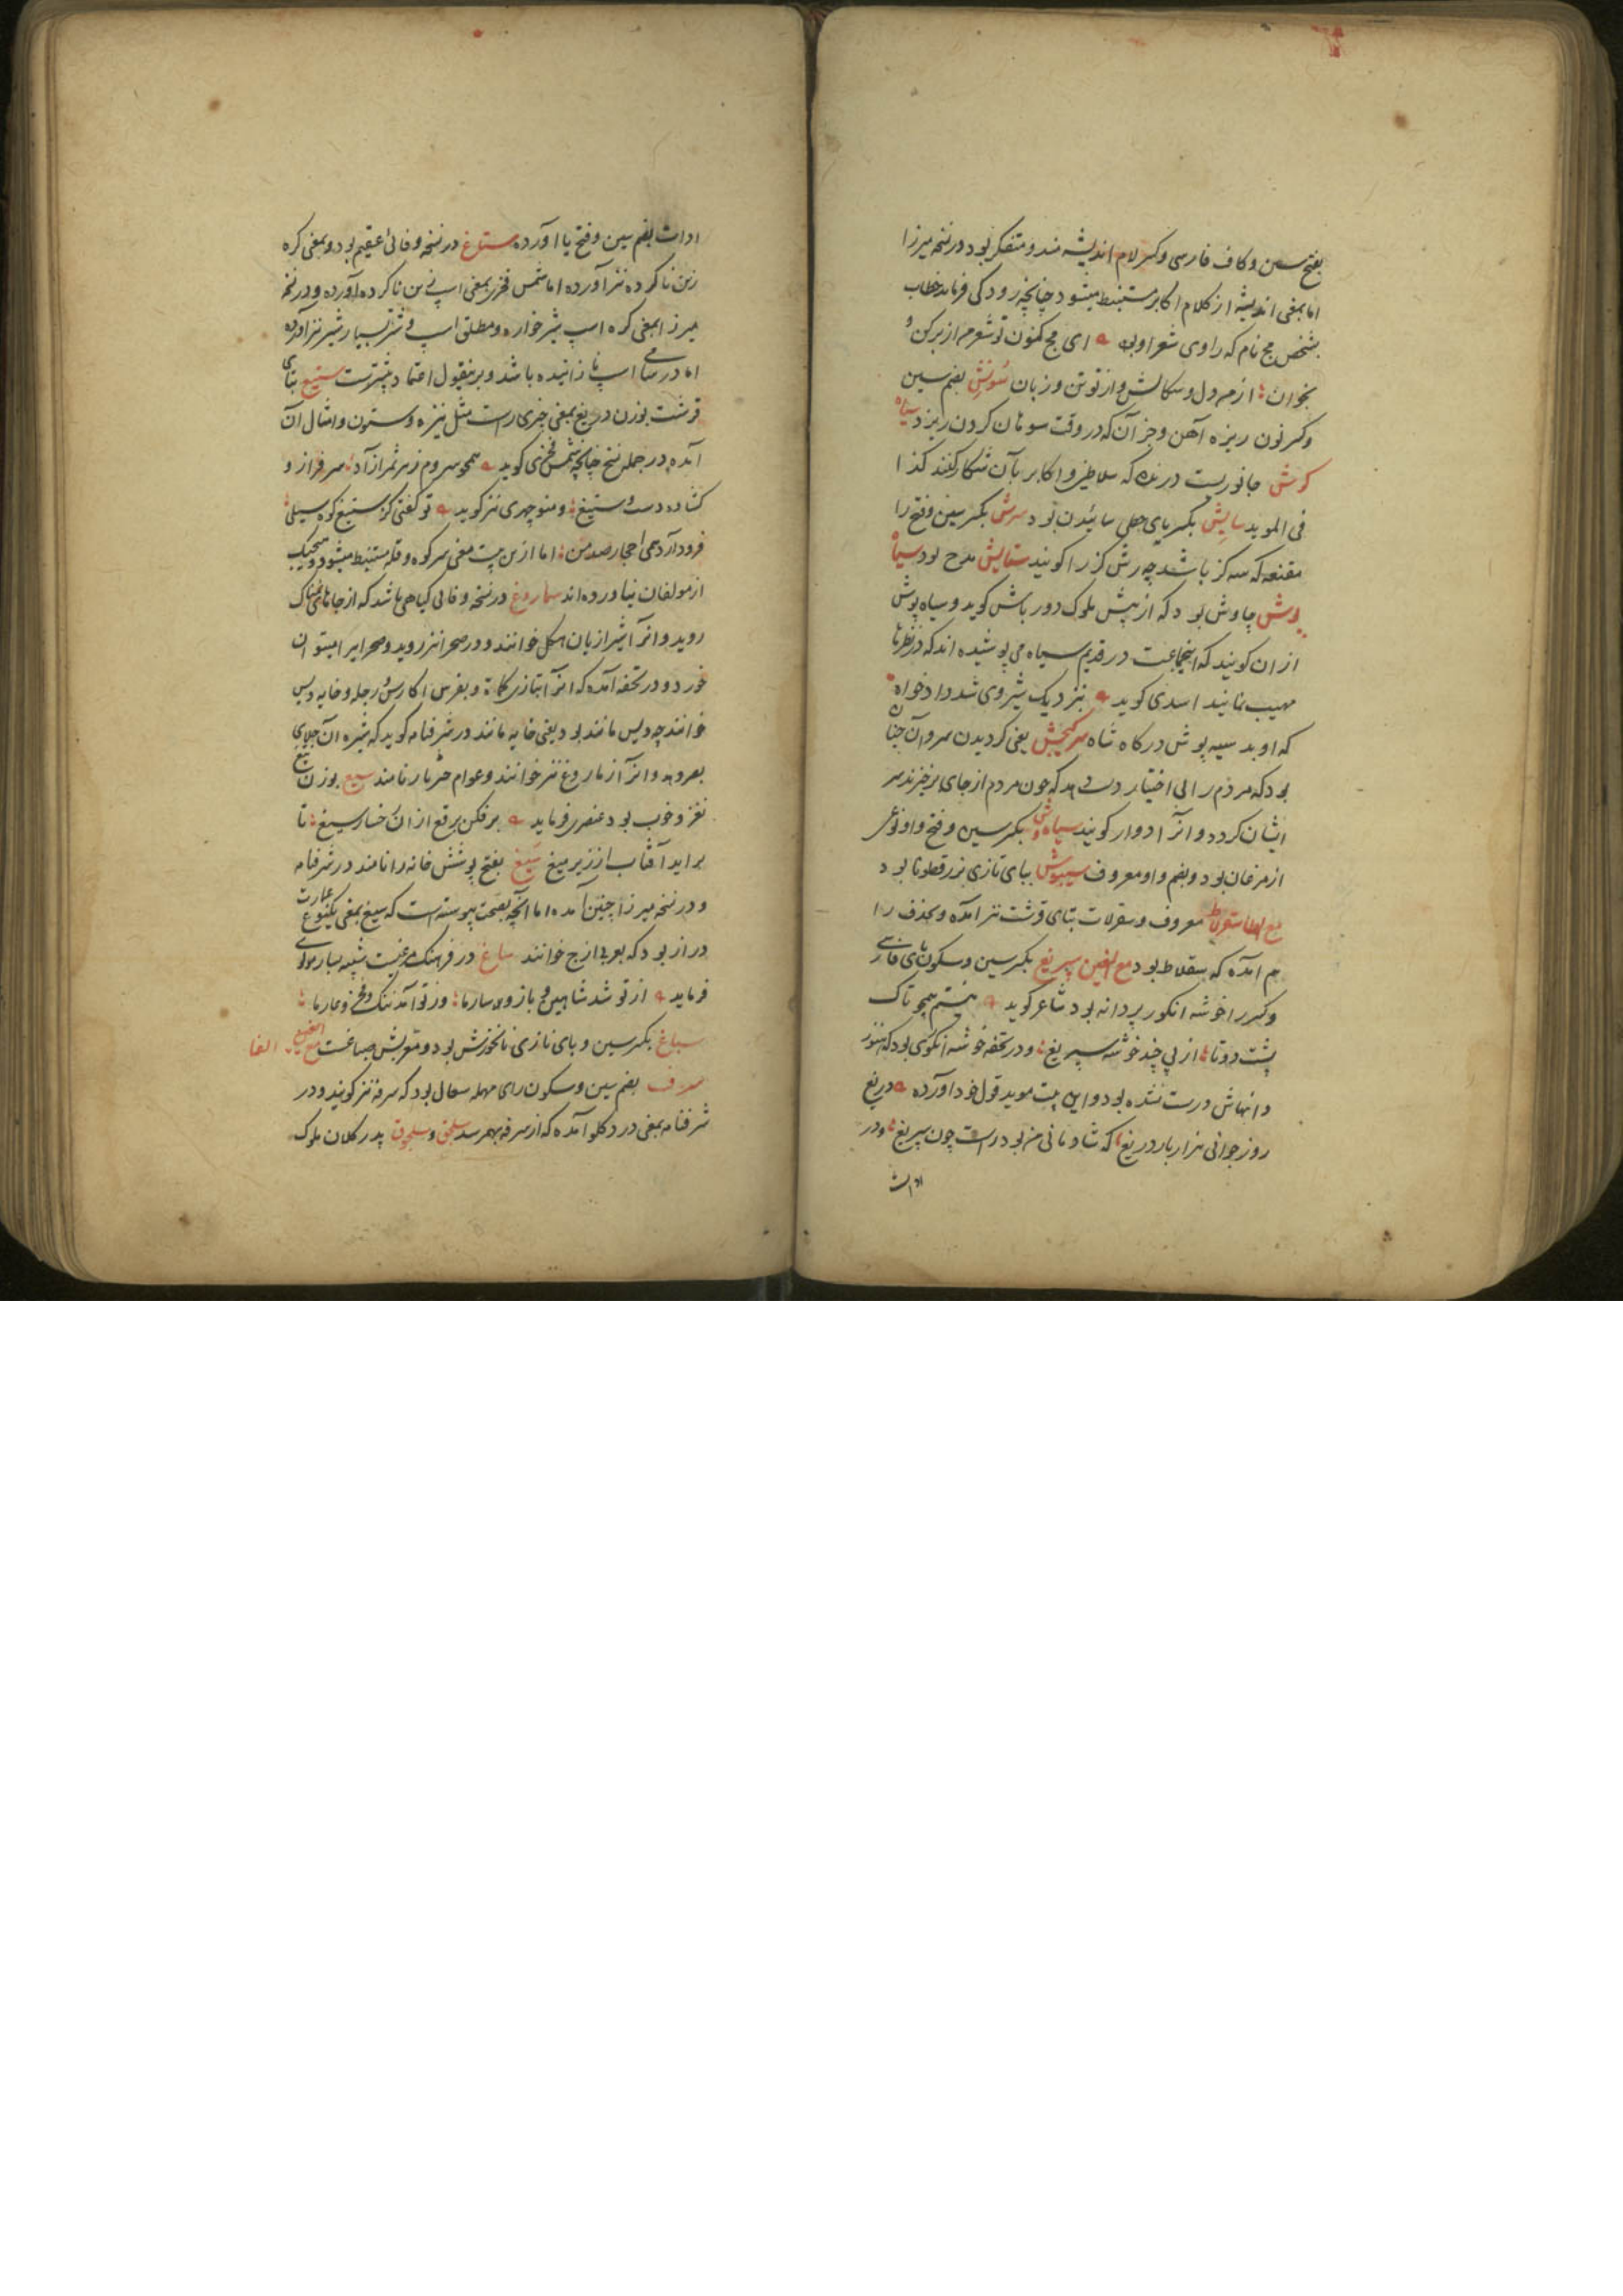 بفتح سین و کاف فارسی و کسر لام اندیشه مند و متفکر بود در نسخه میرزا
اما بمعنی اندیشه از کلام اکابر مستنبط میشود چنانچه رودکی فرماید خطاب
بشخص مج نام که راوی شعر او بی ای مج کنون تو شعر من از بر کن و
بخوان از من دل و سکالش و از تو تن و زبان سونش بضم سین
و کسر نون ریزه آهن و جز آن که در وقت سوهان کردن ریزد سیاه
کوش جانوریست درنده که سلاطین و اکابر بآن شکار کنند کذا
فی الموید سایش بکسر یای حطی سائیدن بود سرش بکسر سین و فتح را
مقنعه که سه کز باشد چه رش کز را کویند ستایش مدح بود سیاه
پوش چاوش بود که از پیش ملوک دور باش کوید و سیاه پوش
از ان کویند که اینجماعت در قدیم سیاه می پوشیده اند که در نظرها
مهیب نمایند اسدی کوید بنزدیک شیروی شد دادخواه
که او بد سیه پوش درکاه شاه سرکیجش یعنی کردیدن سر و آن چنان
بود که مردم را بی اختیار دست دهد که چون مردم از جای برخیزند سر
ایشان کردد و انرا دوار کویند سیاه وش بکسر سین و فتح واو نوعی
از مرغان بود و بضم واو معروف سیبوش ببای تازی بزرقطونا بود
مع الطا سقرلاط معروف و سقرلات بتای قرشت نیز امده و بحذف را
هم امده که سقلاط بود مع الغین سپریغ بکسر سین و سکون بای فارسی
و کسر را خوشه انکور پر دانه بود شاعر کوید همچو تاک
پشت دوتا از پی چند خوشه سپریغ و در تحفه خوشه انکوری بود که هنوز
دانهاش درست نشده بود و این بیت موید قول خود آورده دریغ
روز جوانی هزار بار دریغ که شادمانی من بود درست چون سپریغ و در
ادات
ادات بضم سین و فتح یا آورده ستاغ در نسخه وفائی عقیم بود و بمعنی کره
زین ناکرده نیز آورده اما شمس فخری بمعنی اسپ زین ناکرده آورده و در نسخه
میرزا بمعنی کره اسپ شیرخواره و مطلق اسپ و شتر بسیار شیر نیز آورده
اما در سامی اسپ نازائیده باشد و برینقول اعتماد بیشترست ستیغ بتای
قرشت بوزن دریغ بمعنی چیزی راست مثل نیزه و ستون و امثال آن
آمده در جمله نسخ چنانچه شمس فخری کوید همچو سروم ز هر ثمر آزاد سرفراز و
کشاده دست و ستیغ و منوچهری نیز کوید تو کفتی کز ستیغ کوه سیلی
فرود آرد همی احجار صد من اما ازین بیت معنی سر کوه و قله مستنبط میشود و هیچیک
از مولفان نیاورده اند سماروغ در نسخه وفائی کیاهی باشد که از جاهای نمناک
روید و انرا شیرازیان هکل خوانند و در صحرا نیز روید و صحرایی را میتوان
خورد و در تحفه آمده که انرا بتازی کماة و بفرس اکارس و رجله و خایه دیس
خوانند چه دیس مانند بود یعنی خایه مانند در شرفنامه کوید که شیره آن جلای
بصر دهد و انرا زماروغ نیز خوانند و عوام چتر مار نامند سیغ بوزن تیغ
نغز و خوب بود عنصری فرماید برفکن برقع از ان رخسار سیغ تا
براید آفتاب از زیر میغ سیغ بفتح پوشش خانه را نامند در شرفنامه
و در نسخه میرزا چنین آمده اما آنچه بصحت پیوسته است که سیغ بمعنی یکنوع عمارت
دراز بود که بعربی ازج خوانند ساغ در فرهنک مرغیست شبیه بسار مولوی
فرماید از تو شد شاهین و باز و و سارها وز تو آمد ننک و فخر و عارها
سباغ بکسر سین و بای تازی نانخورش بود و تعریبش صباغست مع الفا
سرف بضم سین و سکون رای مهمله سعال بود که سرفه نیز کویند و در
شرفنامه بمعنی درد کلو آمده که از سرفه بهم رسد سلجق و سلجوق پدر کلان ملوک